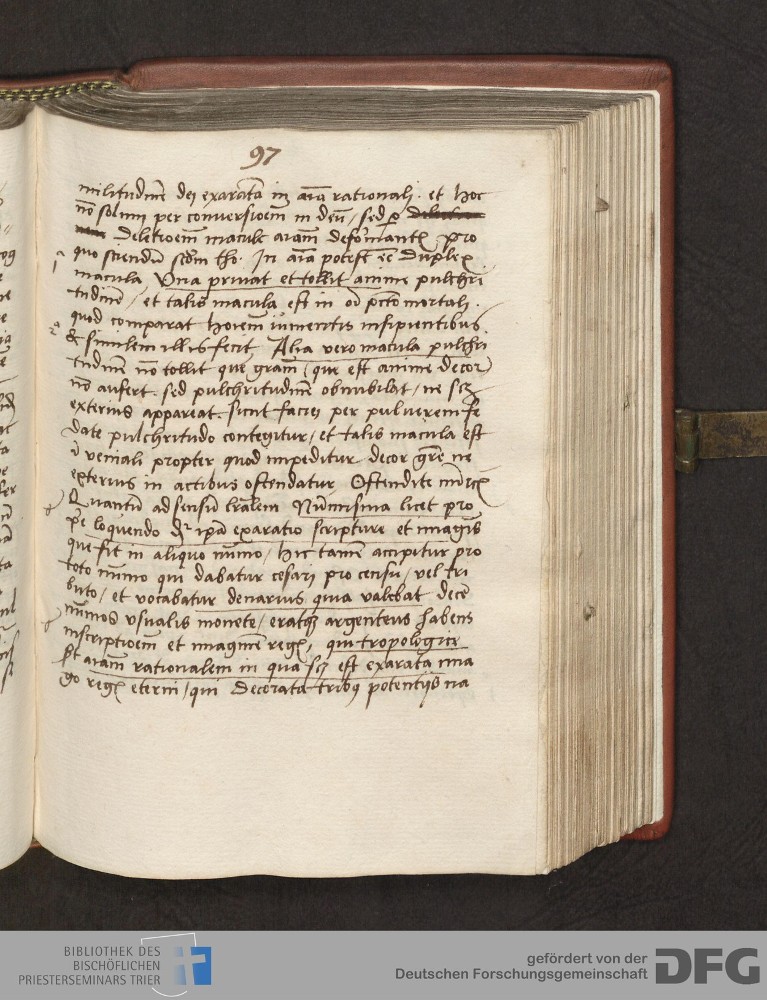 97
militudinē dei exaratā in aīa rationali. et hoc
nō solum per conversioēm in deū / sed ꝑ
deletioēm macule aīam defōrmantꝭ pro
quo sciendū scdm tho. In aīa potest eē duplex
macula. Una privat et tollit anime pulchri
tudinē / et talis macula est in oī pctō mortali.
quod comparat hoīem iumentis insipientibus.
& similem illis fecit Alia vero macula pulchri
tudinē nō tollit que grām (que est anime decor)
nō aufert. sed pulchritudinē obnubilat / ne scꝫ
exterius appareat. sicut facies per pulverem fe
date pulchritudo contegitur / et talis macula est
ī veniali propter quod impeditur decor grē ne
exterius in actibus ostendatur Ostendite mͥ
Quantū ad sensū lrālem Numisma licet pro
prͥe loquendo dr̄ ipā exaratio scripture et imagīs
que fit in aliquo nūmo / hic tamē accipitur pro
toto nūmo qui dabatur cesari pro censu / vel tri
buto / et vocabatur denarius quia valebat decē
nūmos usualis monete / eratqꝫ argenteus habens
inscriptioēm et imaginē regꝭ, qui tropologice
st aīam rationalem in qua scꝫ est exarata ima
go regꝭ eterni / qui decorata tribꝰ potentijs na
BIBLIOTHEK DES
BISCHÖFLICHEN
PRIESTERSEMINARS TRIER
gefördert von der
Deutschen Forschungsgemeinschaft
DFG